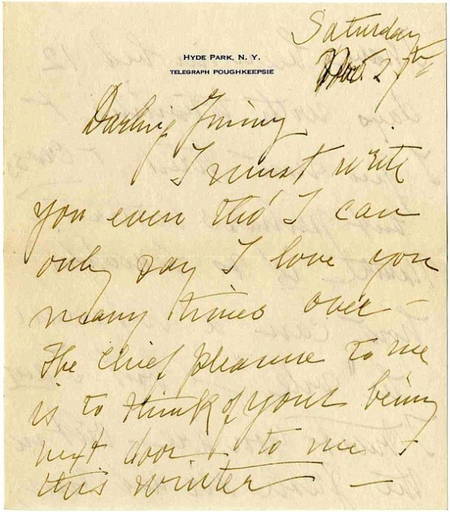 Saturday
Nov. 27th
HYDE PARK, N. Y.
TELEGRAPH POUGHKEEPSIE
Darling
I must write
you even tho' I can
only say I love you
many times over –
The chief pleasure to me
is to think of your being
next door to me
this winter –